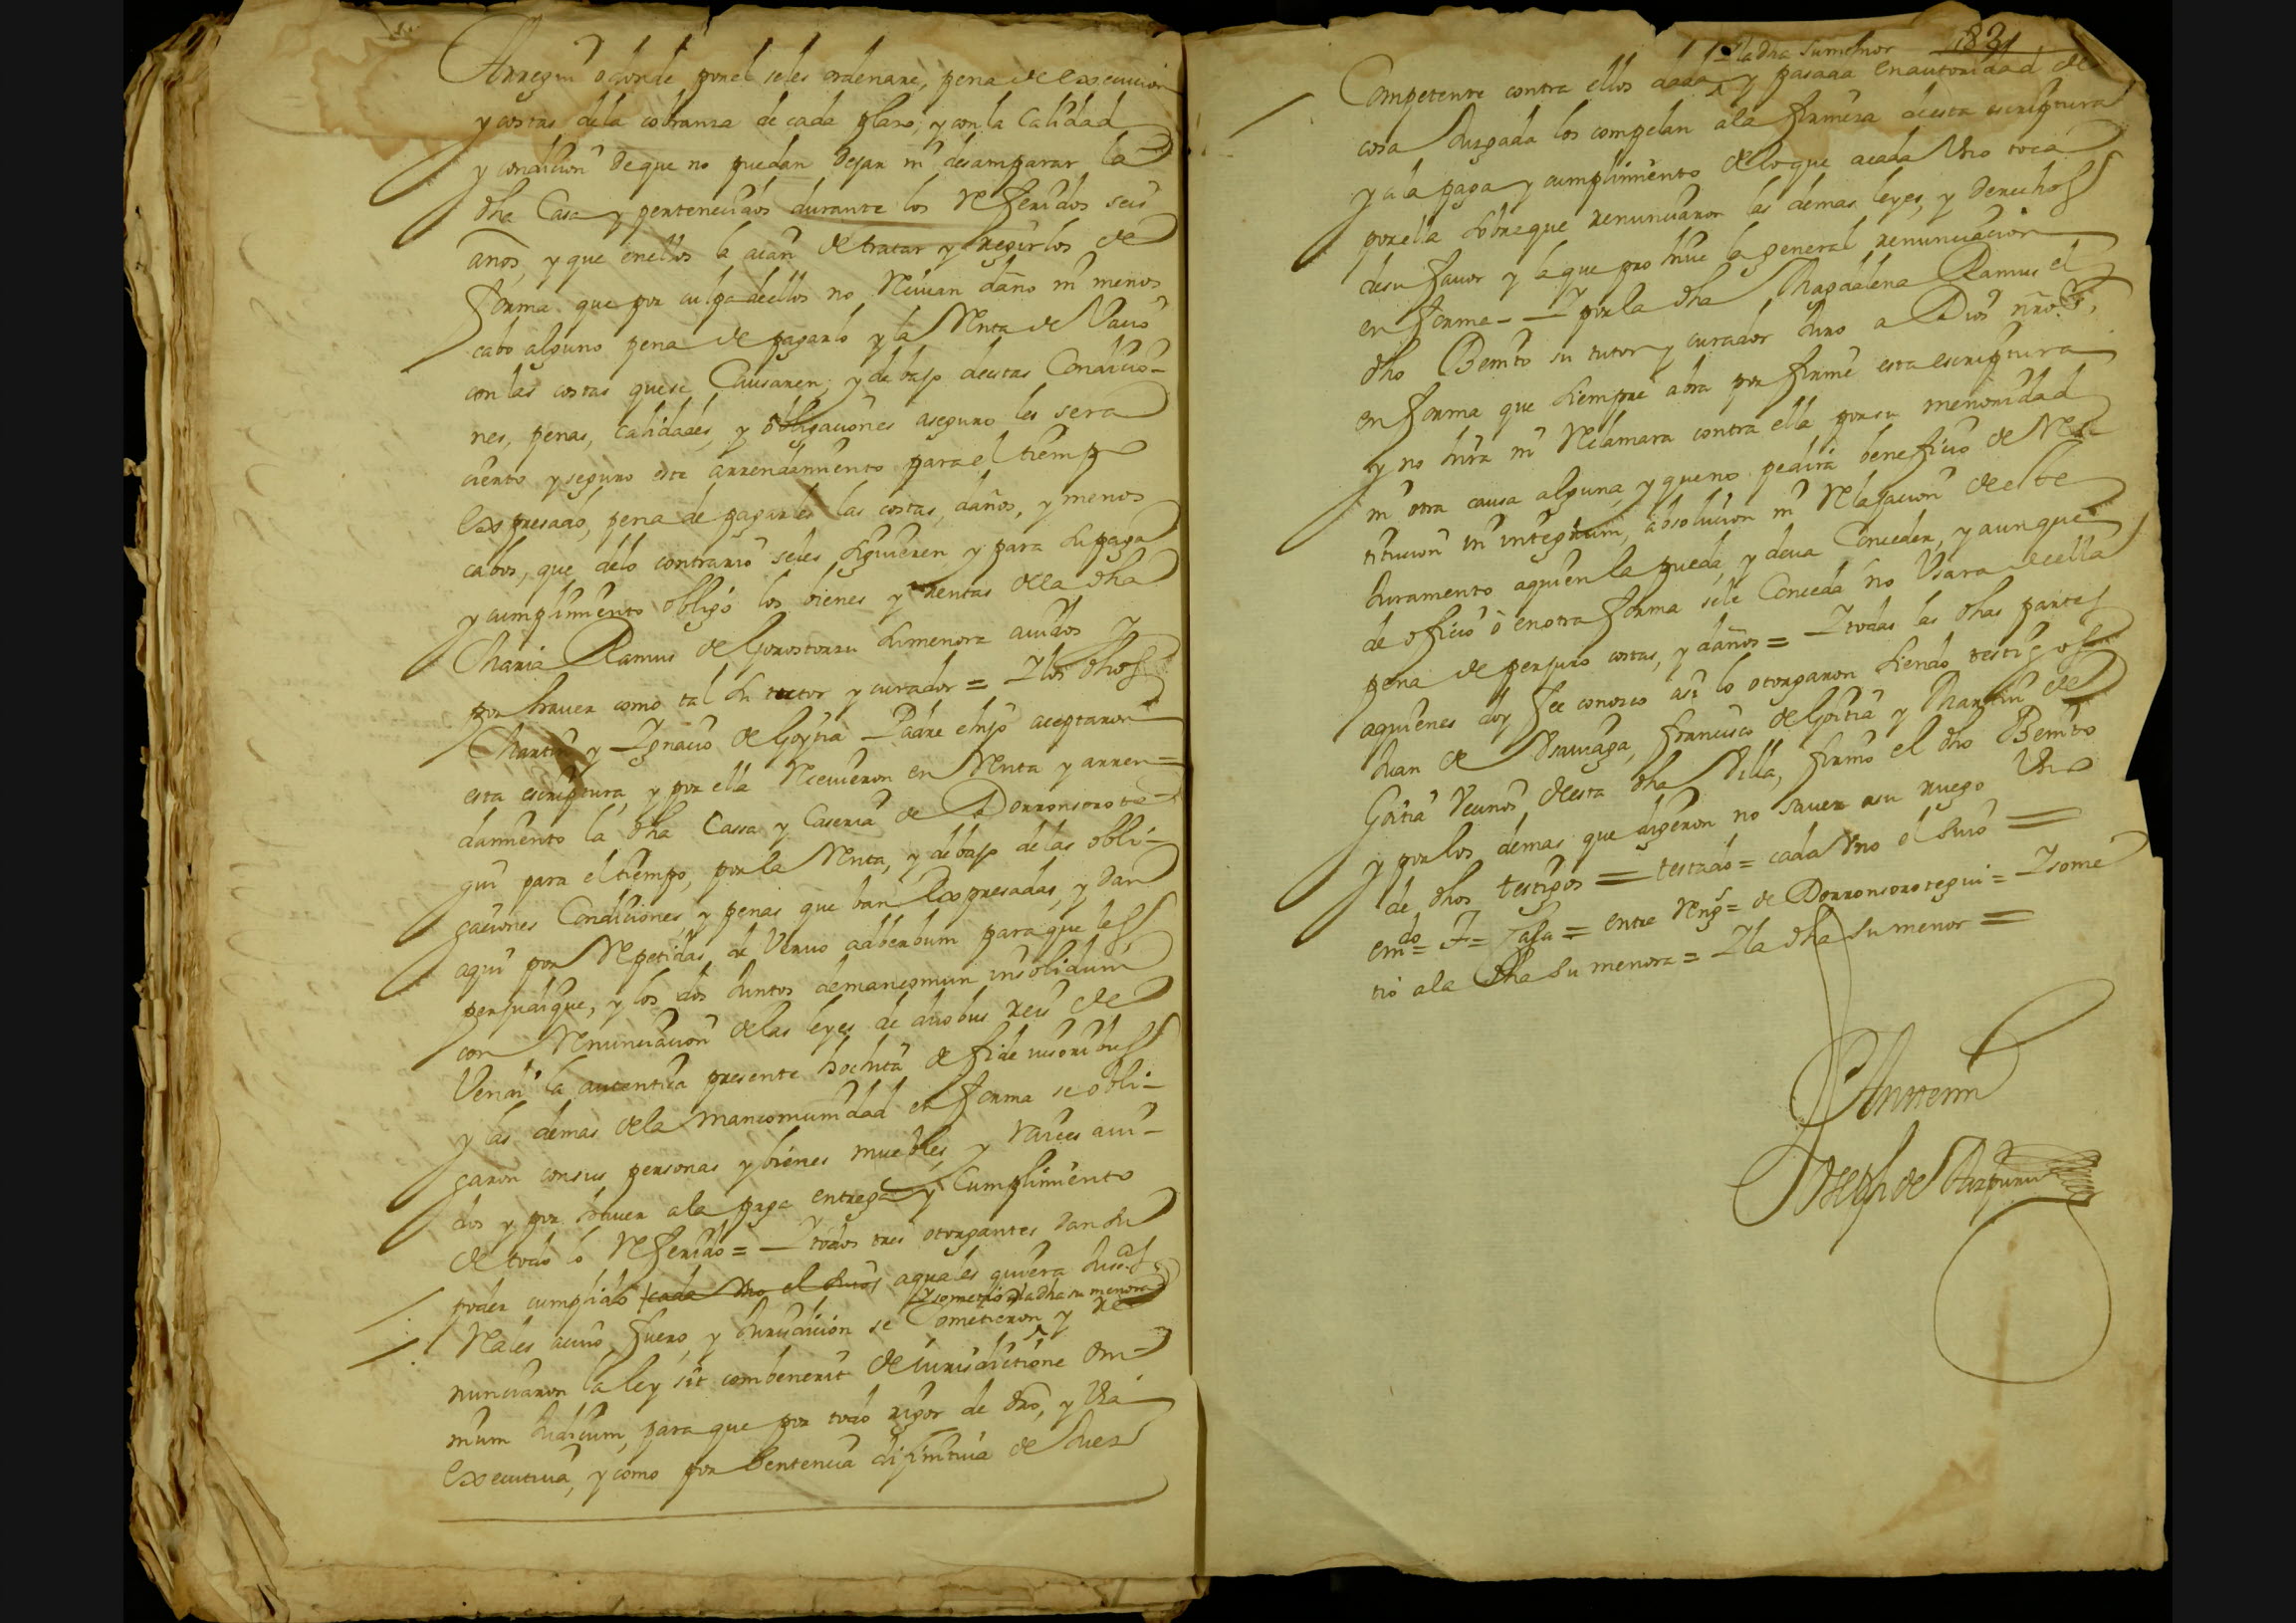 Arregui o donde por el seles ordenare, pena de execucion
y costas dela cobranza de cada plazo, y con la Calidad
y condicion de que no puedan dejar ni desamparar la
dha Casa y pertenecidos durante los referidos seis
años, y que enellos la aian de tratar y regirlos de
forma que por culpa dellos no reciuan daño ni menos
cabo alguno pena de pagarlo y la renta de Vacio
con las costas que se Causaren, y debajo destas Condicio-
nes, penas, calidades, y obligaciones aseguro les sera
cierto y seguro este arrendamiento para el tiempo
expresado, pena de pagarles las costas, daños, y menos
cabos, que delo contrario seles siguieren y para su paga
y cumplimiento obligó los bienes y rentas dela dha
Maria Ramus de Gorostorzu su menora auidos y
por hauer como tal su tutor y curador = Y los dhos
Martin y Ignacio de Goytia Padre e hijo aceptaron
esta escriptura, y por ella reciuieron en renta y arren=
damiento la dha Cassa y Caseria de Dorronsorote-
gui para el tiempo, por la renta, y debajo delas obli-
gaciones Condiciones, y penas que ban expresadas, y dan
aqui por repetidas de Veruo adberbum para que les
perjudique, y los dos Juntos demancomun insolidum
con renunciacion delas leyes de duobus reis de
Vendi la autentica presente hochita de fide iusoribus
y las demas dela mancomunidad en forma se obli-
garon con sus personas y bienes muebles, y raices aui-
dos y por hauer ala paga entrega y Cumplimiento
de todo lo referido = Y todos tres otorgantes dan su
poder cumplido cada vno el suio aquales quiera Juses
y sometio ala dha su menora
reales acuio fuero, y Jurisdicion se Sometieron y re
nunciaron la ley sit combenerit de iurisdictione om-
nium Judicum, para que por todo rigor de dro, y Via
executiua, y como por Sentencia difinitiua de Juez
Y la dha su menor 183
Competente contra ellos dada y pasada en autoridad de
cosa Juzgada los compelan ala firmeza desta escriptura
y ala paga y cumplimiento delo que acada Vno toca
por ella sobre que renunciaron las demas leyes, y derechos
desu fauor y la que prohiue la general renunciacion
en forma - Y por la dha Magdalena Ramus el
dho Benito su tutor y curador Juro a Dios nro Sr,
en forma que siempre abra por firme esta escriptura
y no hira ni reclamara contra ella por su menoridad
ni otra causa alguna, y que no pedira beneficio de res-
titucion in integrum, absolucion ni relajacion de este
Juramento aquien la pueda, y deua Conceder, y aunque
de oficio ò en otra forma sele Conceda no Vsara della
pena de perjuro costas, y daños = Y todas las dhas partes
aquienes doy fee conosco asi lo otorgaron siendo testigos
Juan de Francisco de Goitia y Martin de
Goitia Vecinos desta dha Villa, firmó el dho Benito
y por los demas que dijeron no sauer asu ruego Vno
de dhos testigos = testado = cada Vno el suio =
emdo = entre rengs = de Dorronsorotegui = Y some
tio ala dha su menora = Y la dha su menor =
Ante mi
Joseph de